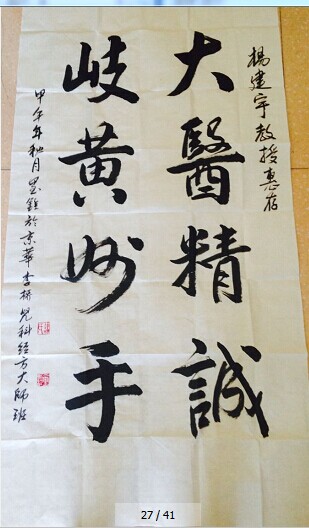 楊建宇教授惠存
大醫精誠
岐黄妙手
甲午年秋月 於京華 李桥児科經方大師班
27 / 41